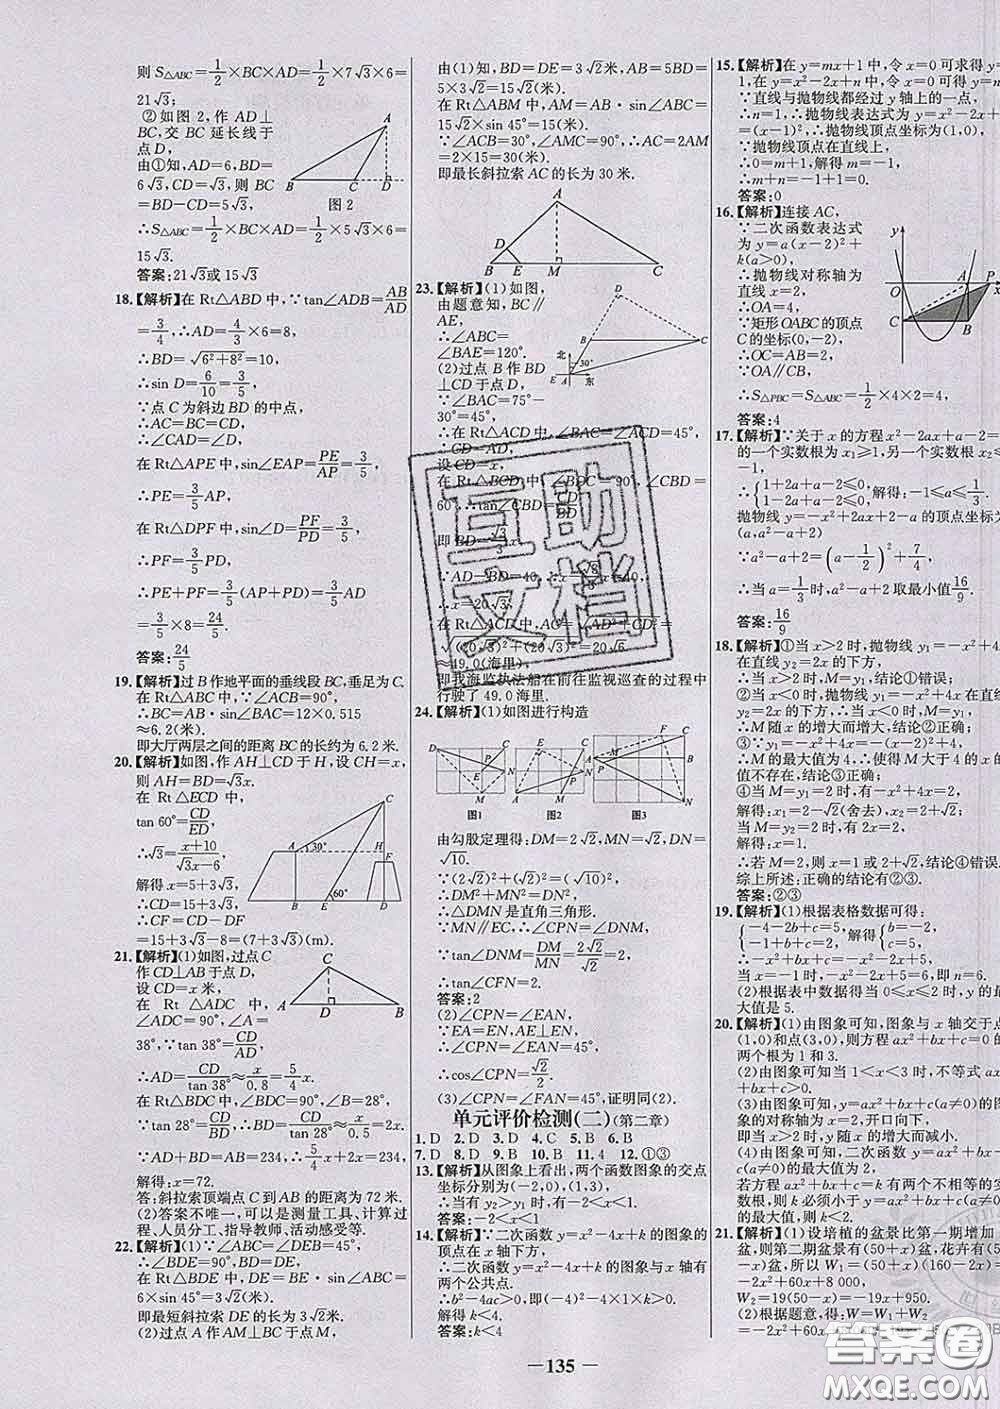 则S△ABC=1/2×BC×AD=1/2×7√3×6=
21√3;
②如图2,作AD⊥
BC,交BC延长线于
点D,
由①知,AD=6,BD=
6√3,CD=√3,则BC=
BD-CD=5√3,
图2
∴S△ABC=1/2×BC×AD=1/2×5√3×6=
15√3.
答案:21√3或15√3
18.【解析】在Rt△ABD中,∵tan∠ADB=AB/AD
=3/4,∴AD=4/3×6=8,
∴BD=√(6²+8²)=10,
∴sin D=6/10=3/5,
∵点C为斜边BD的中点,
∴AC=BC=CD,
∴∠CAD=∠D,
在Rt△APE中,sin∠EAP=PE/AP=3/5,
∴PE=3/5AP,
在Rt△DPF中,sin∠D=PF/PD=3/5,
∴PF=3/5PD,
∴PE+PF=3/5(AP+PD)=3/5AD=
3/5×8=24/5.
答案:24/5
19.【解析】过B作地平面的垂线段BC,垂足为C.
在Rt△ABC中,∵∠ACB=90°,
∴BC=AB·sin∠BAC=12×0.515
≈6.2(米).
即大厅两层之间的距离BC的长约为6.2米.
20.【解析】如图,作AH⊥CD于H,设CH=x,
则AH=BD=√3x.
在Rt△ECD中,
tan60°=CD/ED,
∴√3=(x+10)/(√3x-6),
解得x=5+3√3,
∴CD=15+3√3,
∴CF=CD-DF
=15+3√3-8=(7+3√3)(m).
21.【解析】(1)如图,过点C
作CD⊥AB于点D,
设CD=x米,
在Rt△ADC中,
∠ADC=90°,∠A=
38°,∵tan 38°=CD/AD,
∴AD=CD/tan 38°=x/0.8=5/4x.
在Rt△BDC中,∠BDC=90°,∠B=28°,
∵tan 28°=CD/BD,∴BD=CD/tan 28°=x/0.5=2x.
∵AD+BD=AB=234,∴5/4x+2x=234,
解得:x=72.
答:斜拉索顶端点C到AB的距离为72米.
(2)答案不唯一,可以是测量工具,计算过
程,人员分工,指导教师,活动感受等.
22.【解析】(1)∵∠ABC=∠DEB=45°,
∴∠BDE=90°,
在Rt△BDE中,DE=BE·sin∠ABC=
6×sin45°=3√2(米).
即最短斜拉索DE的长为3√2米.
(2)过点A作AM⊥BC于点M,
由(1)知,BD=DE=3√2米,AB=5BD=
5×3√2=15√2(米).
在Rt△ABM中,AM=AB·sin∠ABC=
15√2×sin45°=15(米).
∵∠ACB=30°,∠AMC=90°,∴AC=2AM
=2×15=30(米).
即最长斜拉索AC的长为30米.
23.【解析】(1)如图,
由题意知,BC∥
AE,
∴∠ABC=
∠BAE=120°.
(2)过点B作BD
⊥CD于点D,
∵∠BAC=75°-
30°=45°,
∴在Rt△ACD中,∠BAC=∠ACD=45°,
CD=AD,
设CD=x,
在Rt△BCD中,∠BDC=90°,∠CBD=
60°,
∵AD-BD=40,
∴x=20√3,
在Rt△ACD中,AC=√(AD²+CD²)=
√((20√3)²+(20√3)²)
≈49.0(海里),
即我海监执法船在前往监视巡查的过程中
行驶了49.0海里.
24.【解析】(1)如图进行构造
图1 图2 图3
由勾股定理得:DM=2√2,MN=√2,DN=
√10.
∵(2√2)²+(√2)²=(√10)²,
∴DM²+MN²=DN²,
∴△DMN是直角三角形.
∵MN∥EC,∴∠CPN=∠DNM,
∵tan∠DNM=DM/MN=2√2/√2=2,
∴tan∠CPN=2.
答案:2
(2)∠CPN=∠EAN,
∵EA=EN,AE⊥EN,
∴∠CPN=∠EAN=45°,
∴cos∠CPN=√2/2.
(3)∠CPN=∠FAN=45°,证明同(2).
单元评价检测(二)(第二章)
1.D 2.D 3.D 4.C 5.B 6.B
7.D 8.D 9.D 10.B 11.4 12.①③
13.【解析】从图象上看出,两个函数图象的交点
坐标分别为(-2,0),(1,3),
∴当有y₂>y₁时,有-2<x<1.
答案:-2<x<1
14.【解析】∵二次函数y=x²-4x+k的图象的
顶点在x轴下方,
∴二次函数y=x²-4x+k的图象与x轴有
两个公共点.
∴b²-4ac>0,即(-4)²-4×1×k>0.
解得:k<4
答案:k<4
15.【解析】在y=mx+1中,令x=0可求得y=
1,在y=x²-2x+n中,令x=0可得y=
∵直线与抛物线都经过y轴上的一点,
∴n=1,∴抛物线表达式为y=x²-2x+
=(x-1)²,∴抛物线顶点坐标为(1,0),
∵抛物线顶点在直线上,
∴0=m+1,解得m=-1,
∴m+n=-1+1=0.
答案:0
16.【解析】连接AC,
∵二次函数表达式
为y=a(x-2)²+
k(a>0),
∴抛物线对称轴为
直线x=2,
∴OA=4,
∵矩形OABC的顶点
C的坐标(0,-2),
∴OC=AB=2,
∵OA∥CB,
∴S△PBC=S△ABC=1/2×4×2=4,
答案:4
17.【解析】∵关于x的方程x²-2ax+a-2=
的一个实数根为x₁≥1,另一个实数根x₂≤
-1,
∴{1+2a+a-2≤0, 1-2a+a-2≤0, 解得:-1≤a≤1/3
抛物线y=-x²+2ax+2-a的顶点坐标为
(a,a²-a+2)
∵a²-a+2=(a-1/2)²+7/4,
∴当a=1/3时,a²-a+2取最小值16/9
答案:16/9
18.【解析】①当x>2时,抛物线y₁=-x²+4x
在直线y₂=2x的下方,
∴当x>2时,M=y₁,结论①错误;
②当x<0时,抛物线y₁=-x²+4x在直线
y₂=2x的下方,∴当x<0时,M=y₁,
∴M随x的增大而增大,结论②正确;
③∵y₁=-x²+4x=-(x-2)²+4,
∴M的最大值为4,∴使得M大于4的x
值不存在,结论③正确;
④当M=y₁=2时,有-x²+4x=2,
解得:x₁=2-√2(舍去),x₂=2+√2;
当M=y₂=2时,有2x=2,
解得:x=1.
∴若M=2,则x=1或2+√2,结论④错误.
综上所述:正确的结论有②③.
答案:②③
19.【解析】(1)根据表格数据可得:
{-4-2b+c=5, -1+b+c=2, 解得{b=-2, c=5,
∴-x²+bx+c=-x²-2x+5,
∴当x=-1时,-x²-2x+5=6,即n=6.
(2)根据表中数据得当0≤x≤2时,y的最
大值是5.
20.【解析】(1)由图象可知,图象与x轴交于点
(1,0)和点(3,0),则方程ax²+bx+c=0的
两个根为1和3.
(2)由图象可知当1<x<3时,不等式ax²+
bx+c>0.
(3)由图象可知,y=ax²+bx+c(a≠0)的图
象的对称轴为x=2,开口向下,
y随x的增大而减小.
(4)由图象可知,二次函数y=ax²+bx+
c(a≠0)的最大值为2,
若方程ax²+bx+c=k有两个不相等的实
数根,则k必须小于y=ax²+bx+c(a≠0)
的最大值,则k<2.
21.【解析】(1)设培植的盆景比第一期增加
盆,则第二期盆景有(50+x)盆,花卉有(5
x)盆,所以W₁=(50+x)(160-2x)=
-2x²+60x+8 000,
W₂=19(50-x)=-19x+950.
(2)根据题意,得:W=W₁+W₂
=-2x²+
— 135 —
互助文档
答案圈
MXQE.COM